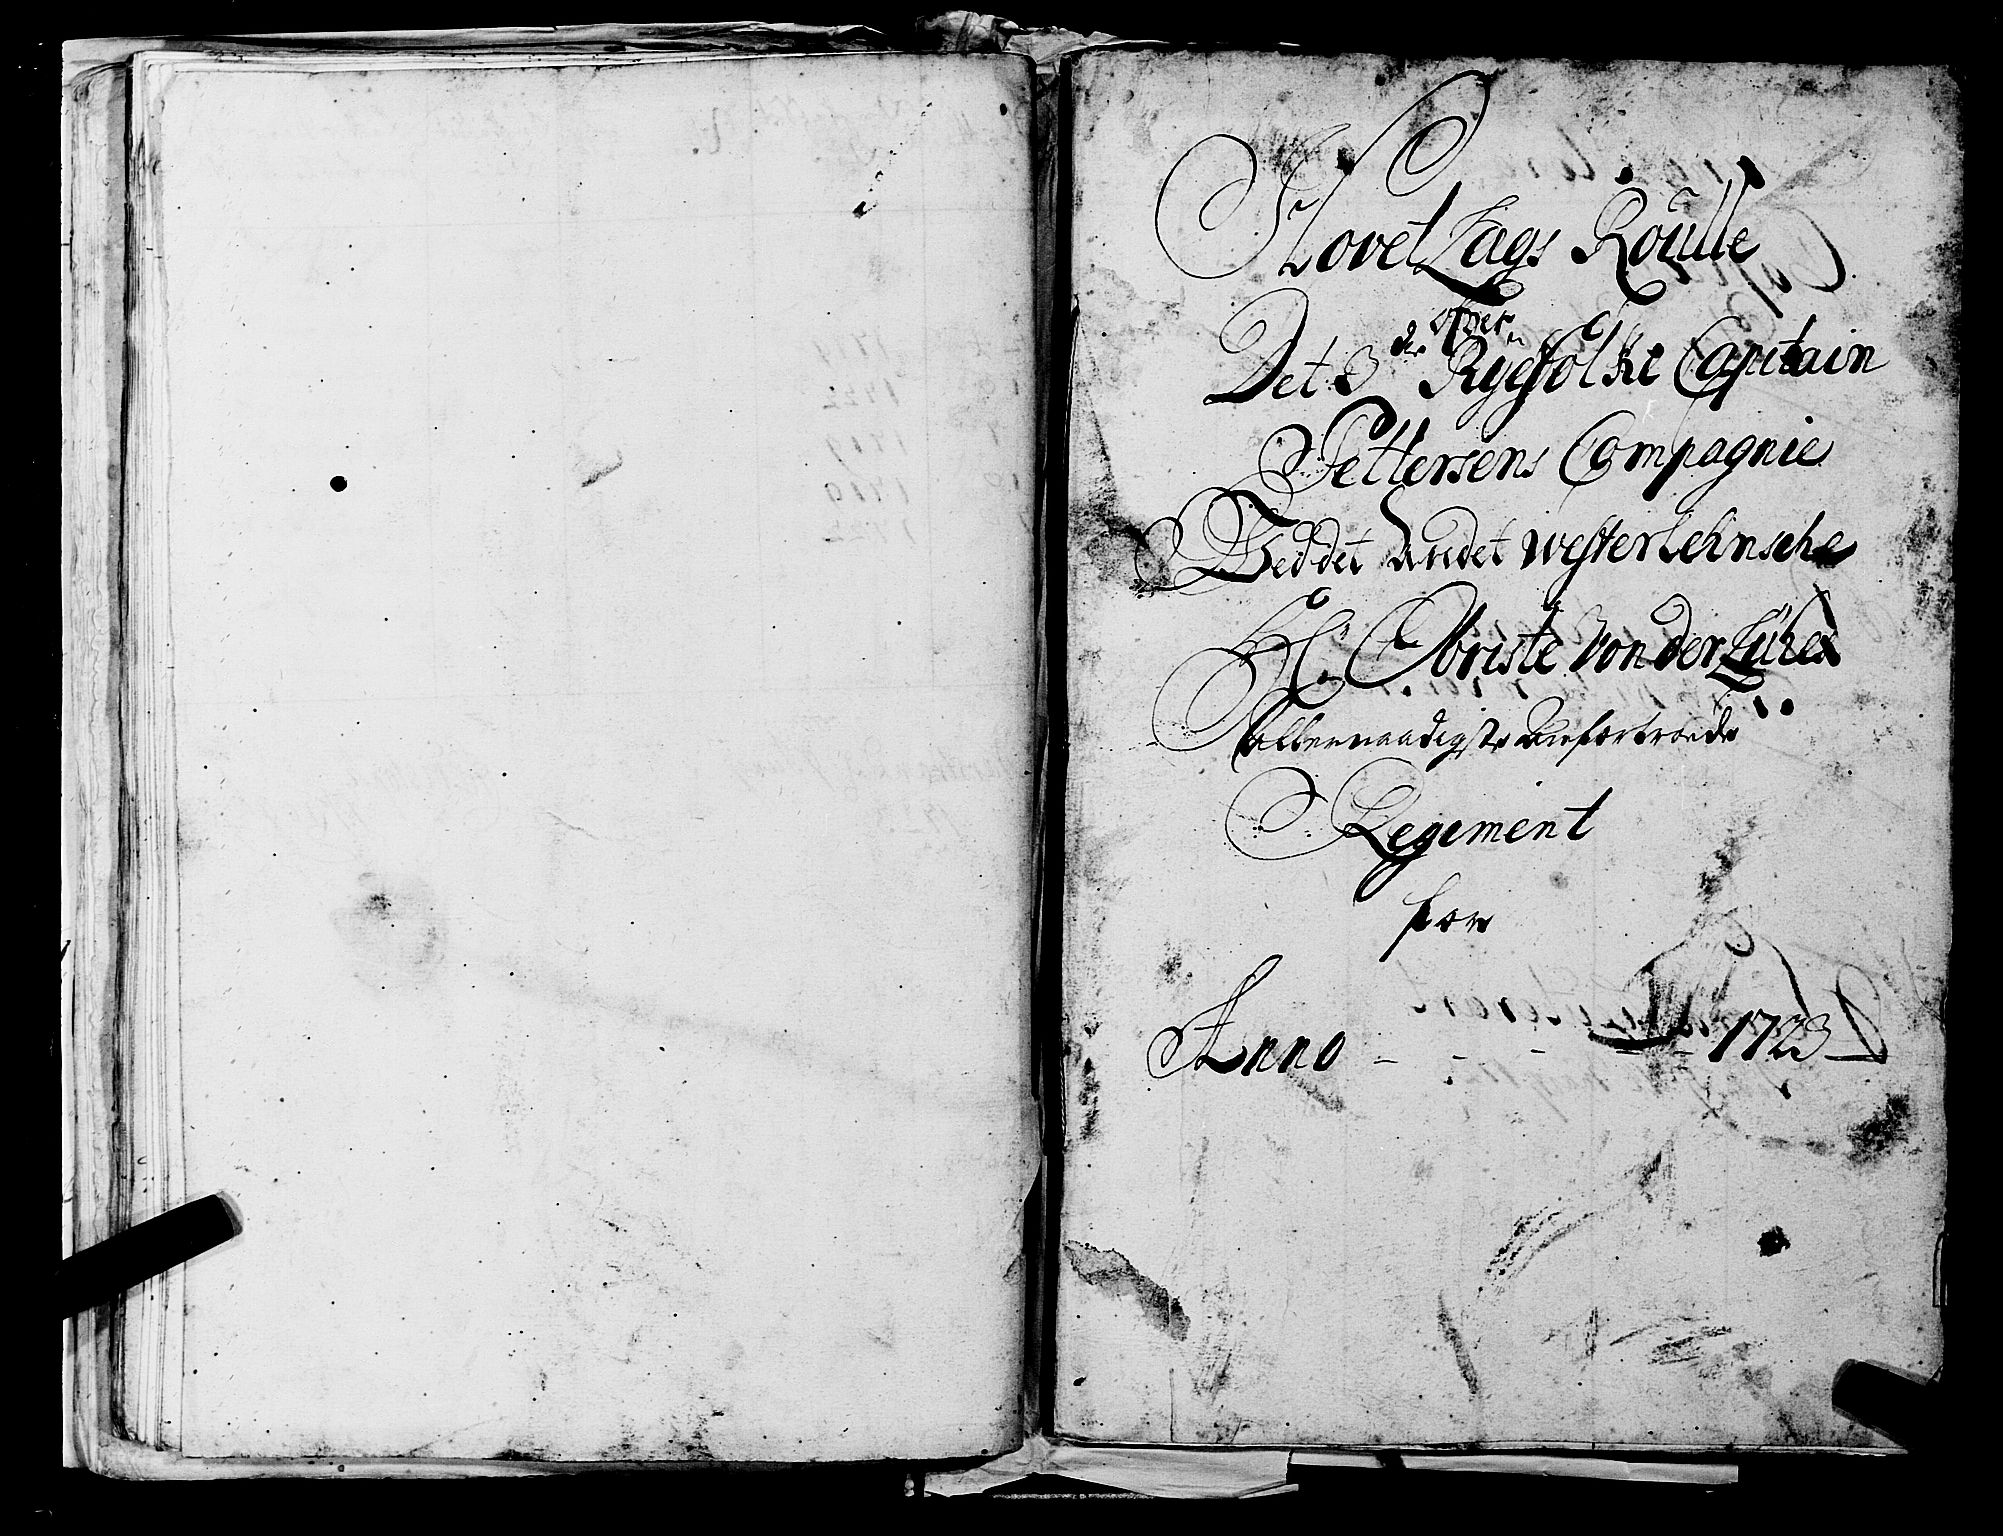 Hovet Lags Roulle
over
Det 3 die Ryefölke Capitain
Pettersens Compagnie
Ved det Andet westerlehnsche
Hr Obriste Von der Lühes
allernaadigste Anfortroede
Regiment
for
Anno - - - - 1723